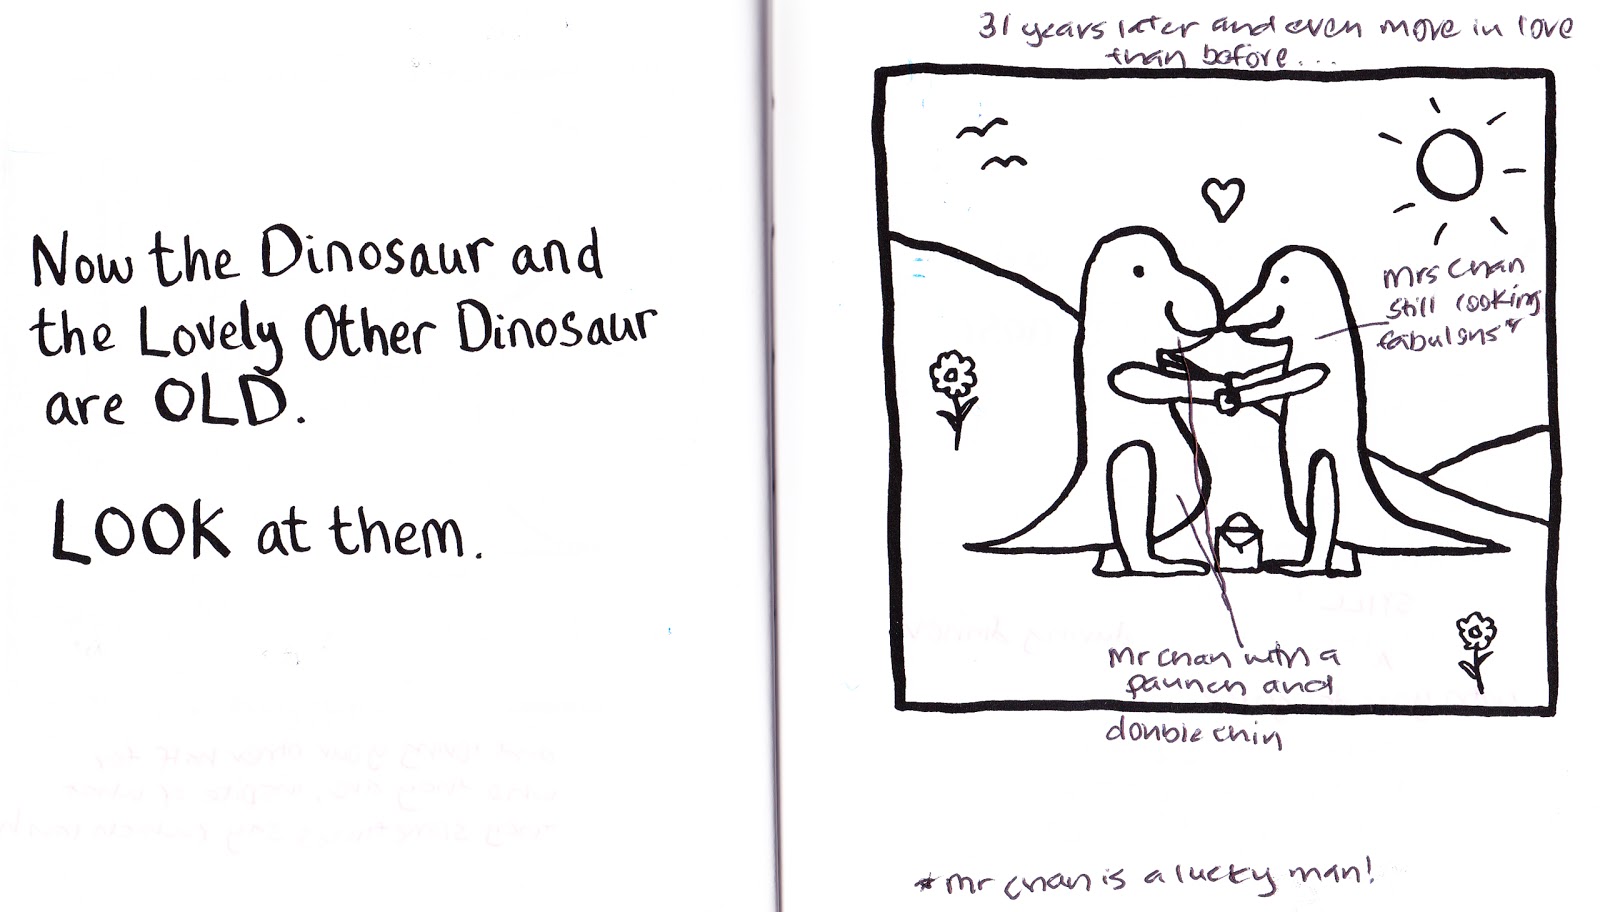 Now the Dinosaur and
the Lovely Other Dinosaur
are OLD.
LOOK at them.
31 years later and even more in love
than before...
Mrs Chan
still looking
fabulous*
Mr Chan with a
paunch and
double chin
*Mr Chan is a lucky man!